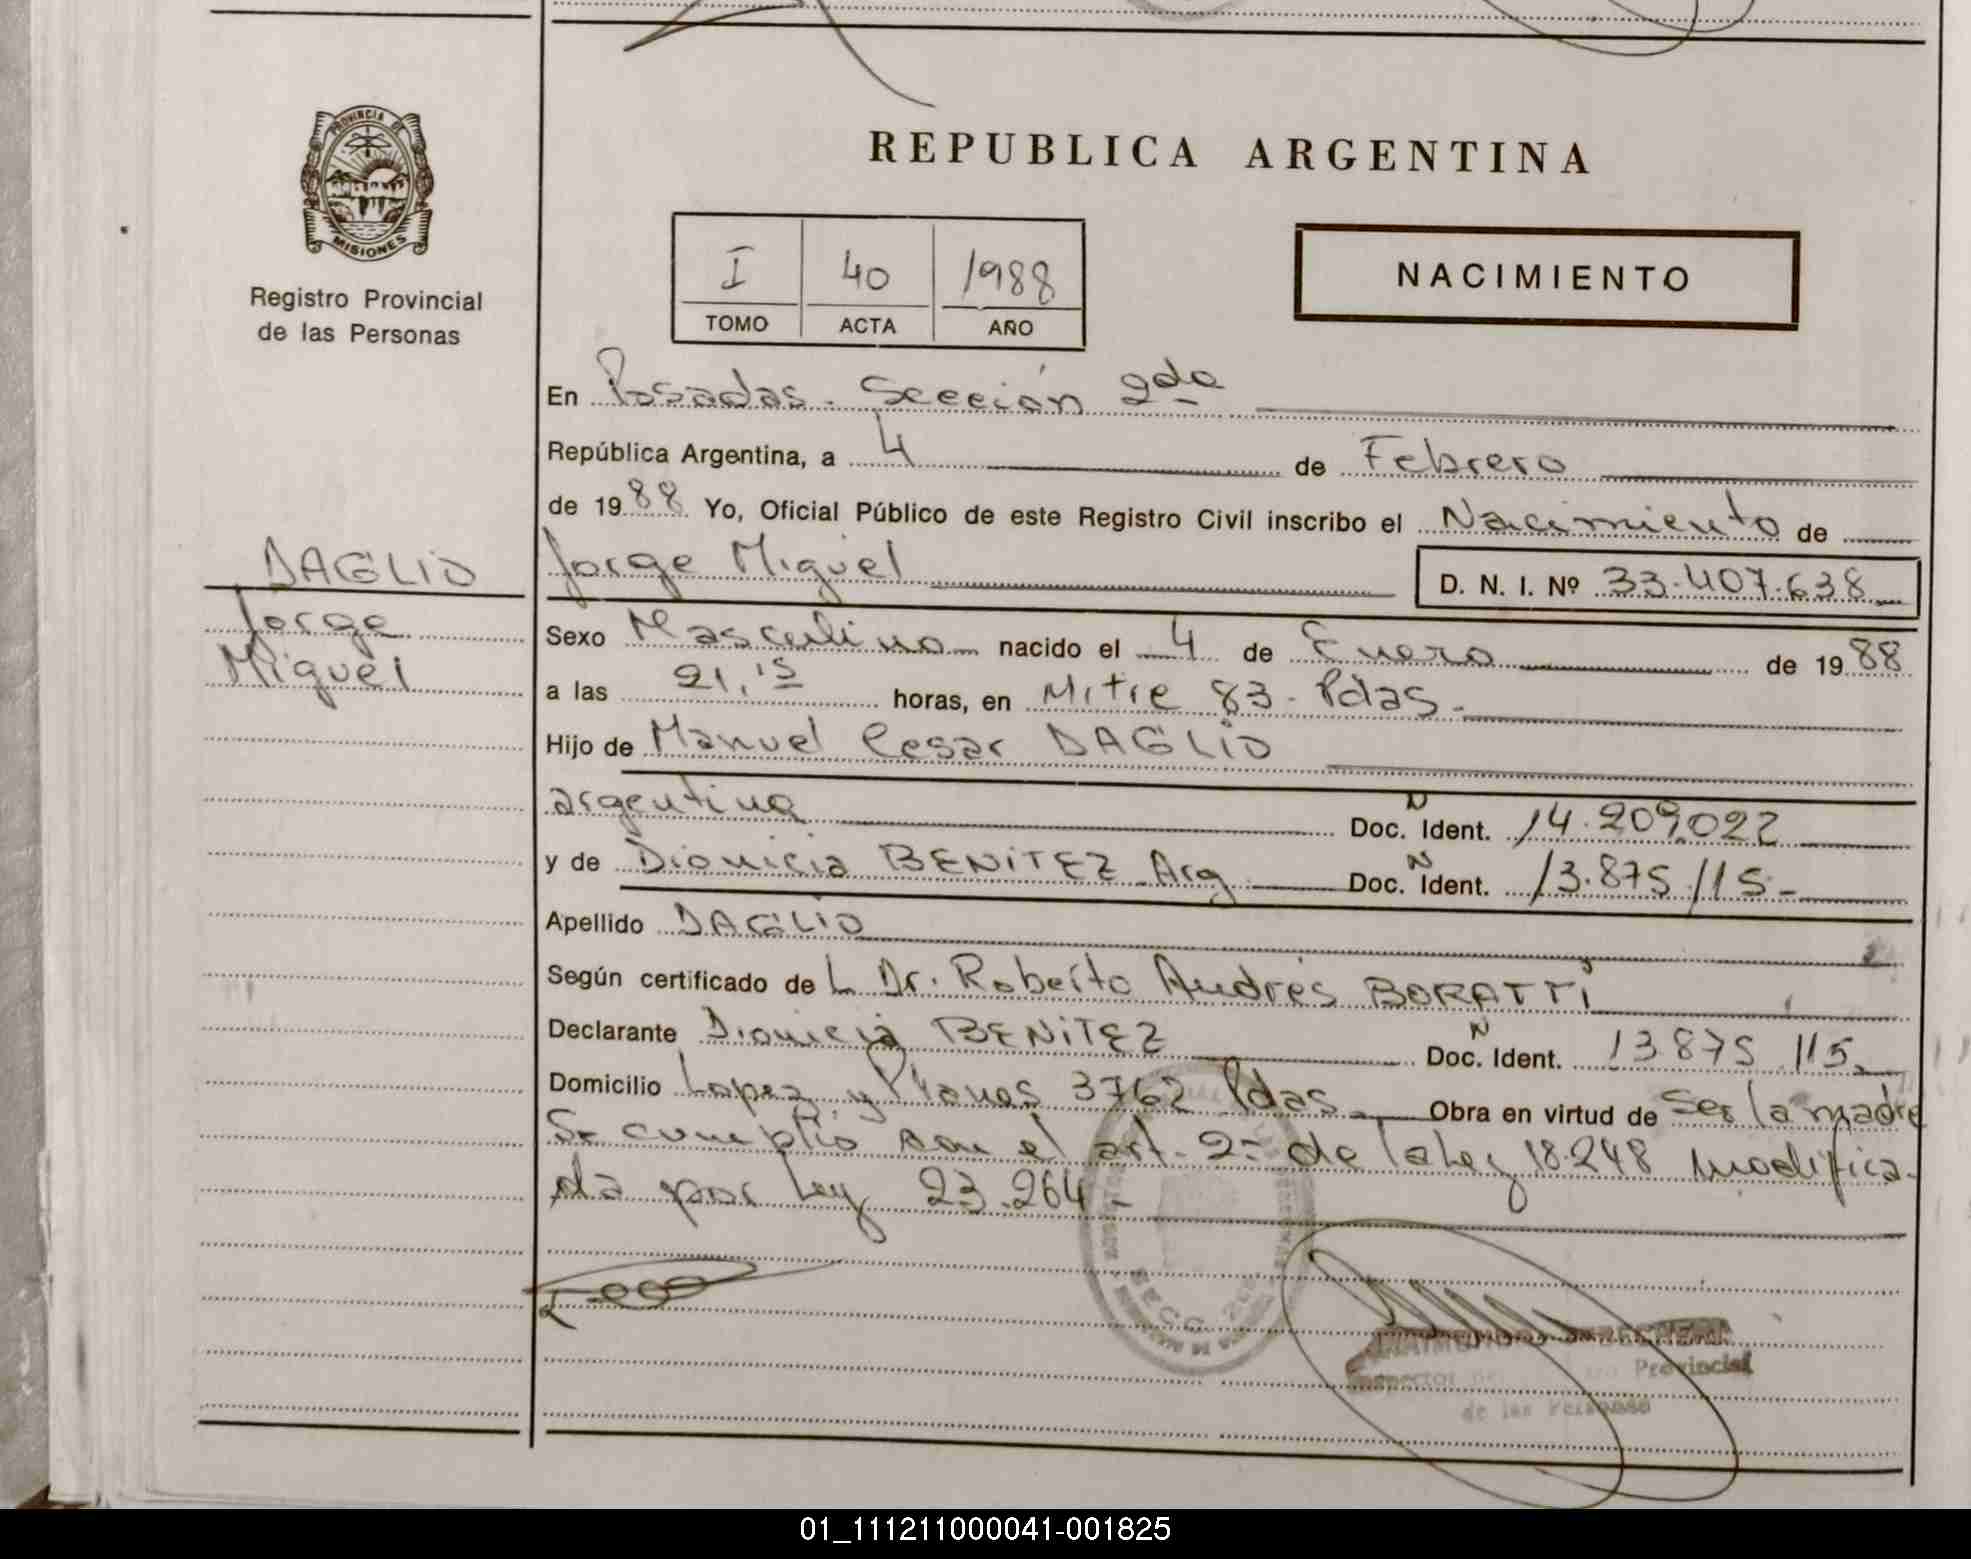 PROVINCIA DE
MISIONES
Registro Provincial
de las Personas
REPUBLICA ARGENTINA
I 40 1988
TOMO ACTA AÑO
NACIMIENTO
En Posadas. Sección 2da
República Argentina, a 4 de Febrero
de 1988 Yo, Oficial Público de este Registro Civil inscribo el Nacimiento de
DAGLIO
Jorge
Miguel
Jorge Miguel D. N. I. Nº 33.407.638
Sexo Masculino nacido el 4 de Enero de 1988
a las 21,15 horas, en Mitre 83. Pdas.
Hijo de Manuel Cesar DAGLIO
argentina Doc. N Ident. 14.209.022
y de Dionicia BENITEZ Arg Doc. N Ident. 13.875.115-
Apellido DAGLIO
Según certificado de L Dr. Roberto Andrés BORATTI
Declarante Dionicia BENITEZ Doc. N Ident. 13.875.115-
Domicilio Lopez y Planes 3762 Pdas. Obra en virtud de Ser la madre
Se cumplió con el art. 2- de la Ley 18.248 modifica-
da por Ley 23.264-
SECC. 2da
Inspector Provincial
de las Personas
01_111211000041-001825